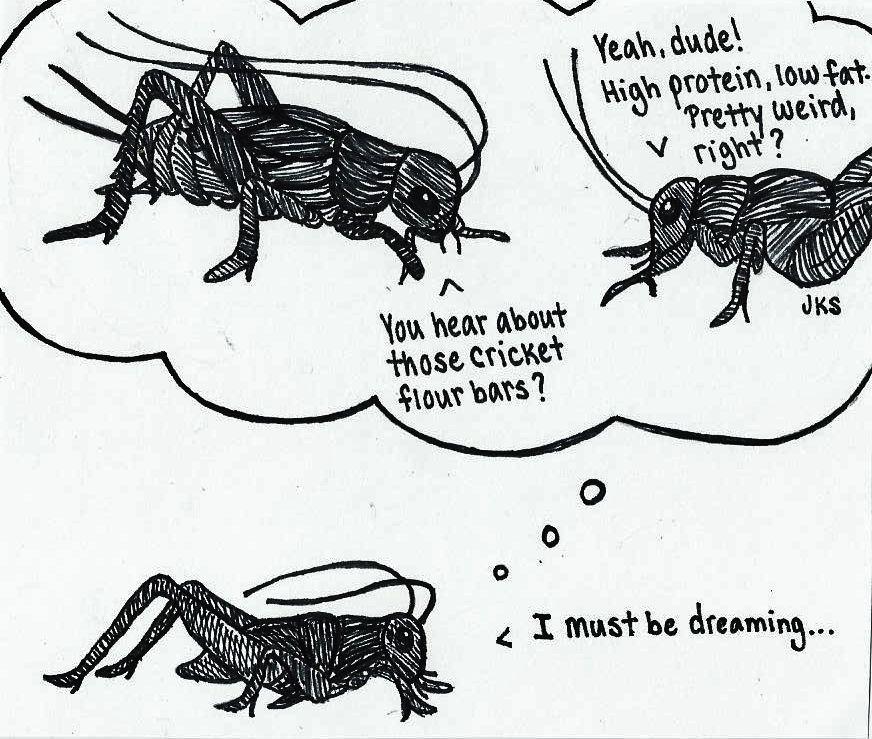 Yeah, dude!
High protein, low fat.
Pretty weird,
right?
JKS
You hear about
those cricket
flour bars?
I must be dreaming...